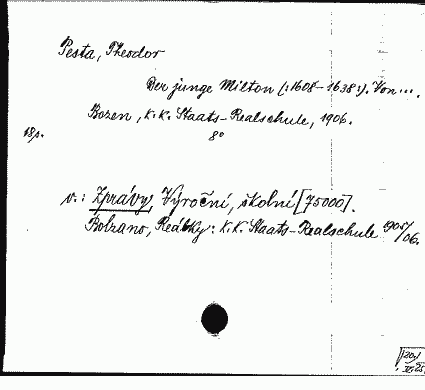 Pesta, Theodor
Der junge Milton (:1608–1638:). Von....
Bozen, K.K. Staats-Realschule, 1906.
18p.
8°
v.: Zprávy, Výroční, školní [75000].
Bolzano, Reálky: K.K. Staats-Realschule 1905/06.